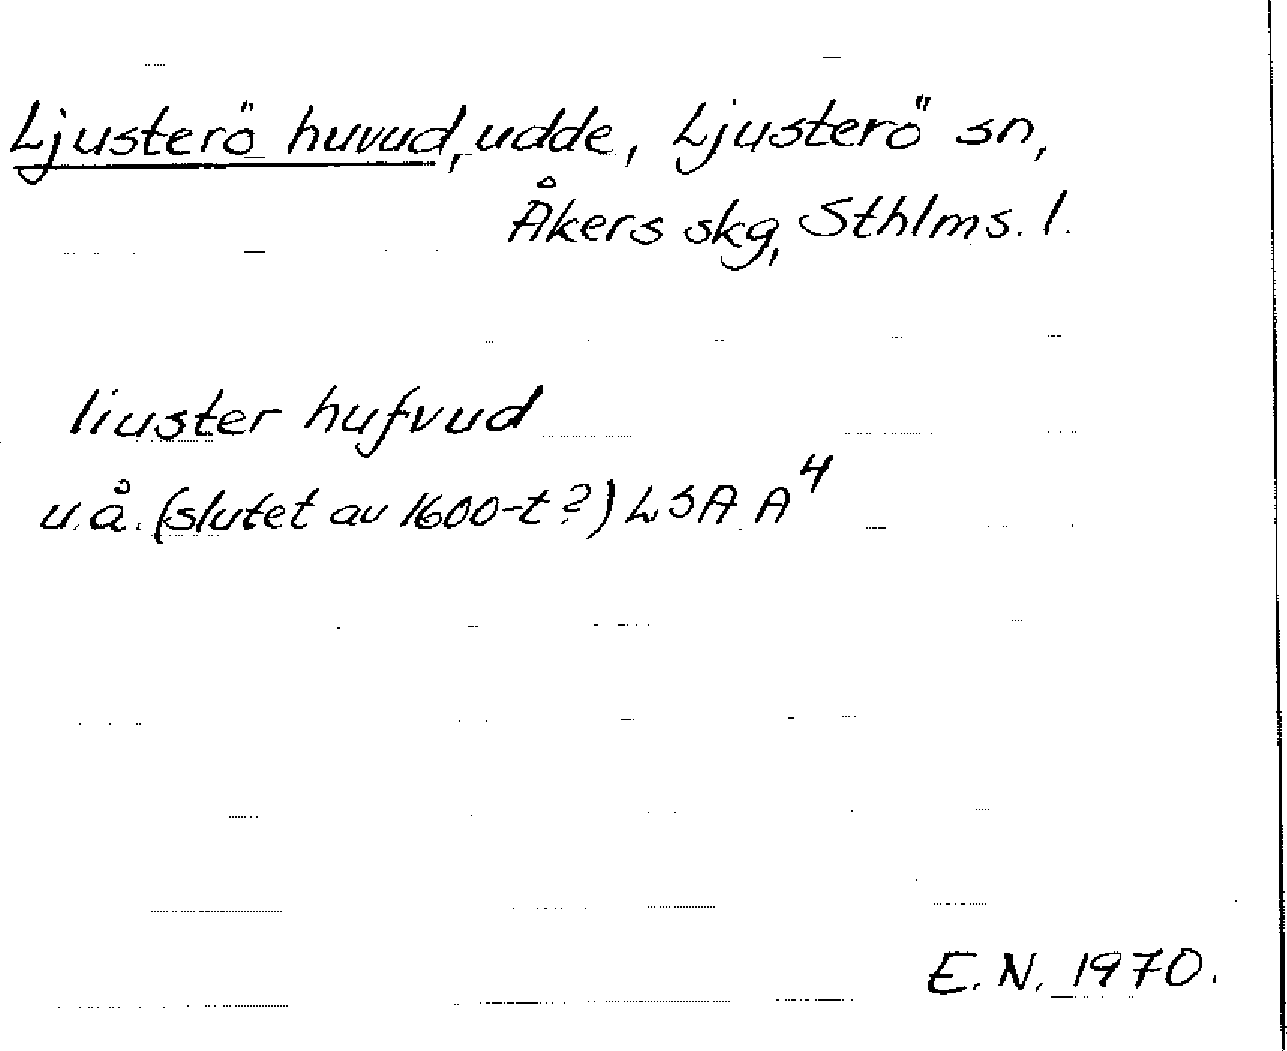 Ljusterö huvud, udde, Ljusterö sn,
Åkers skg, Sthlms. l.
liuster hufvud
u.å. (slutet av 1600-t?) LSA A⁴
E.N. 1970.